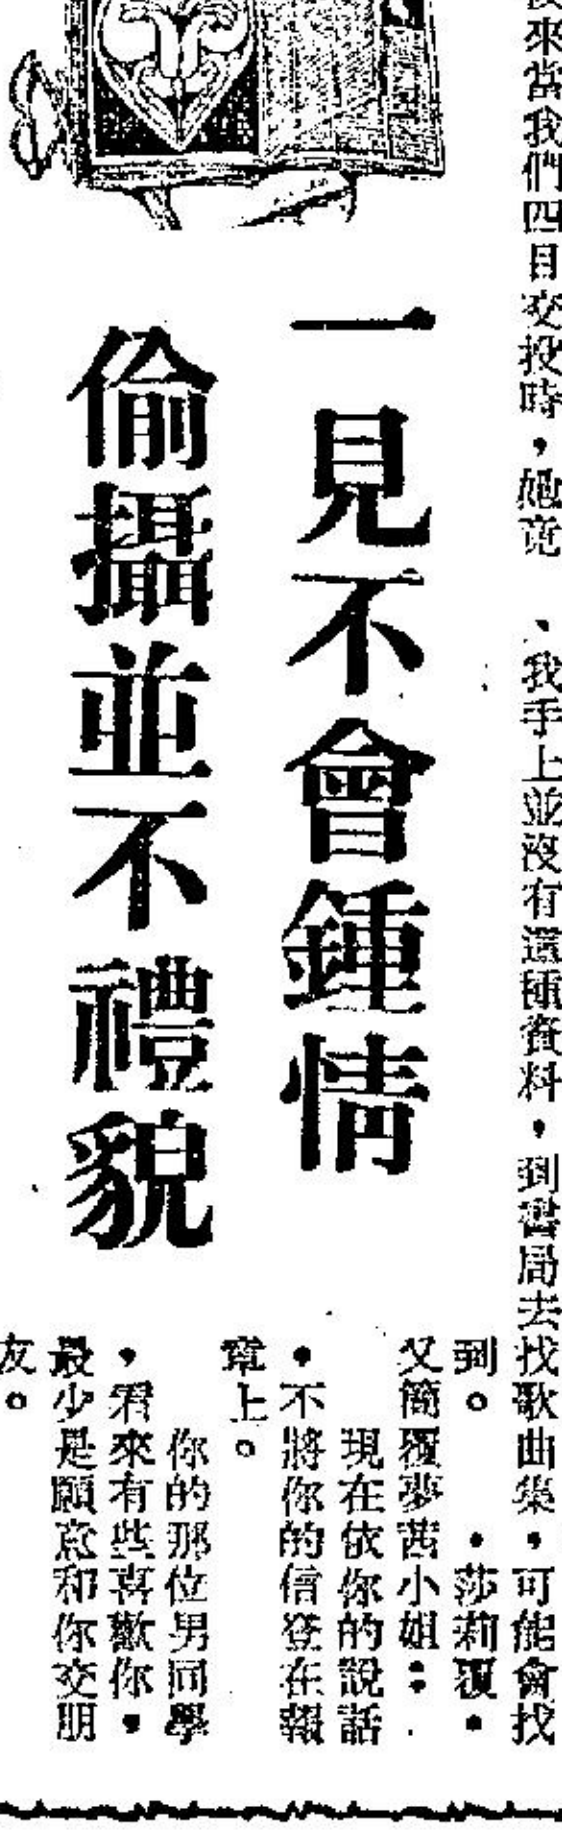 來當我們四目交投時，她竟
、我手上並沒有這種資料，到書局去找歌曲集，可能會找
到。　　•莎莉覆•
一見不會鍾情
偷攝並不禮貌
又簡覆夢茜小姐：
現在依你的說話
，不將你的信登在報
章上。
你的那位男同學
，看來有些喜歡你，
最少是願意和你交朋
友。